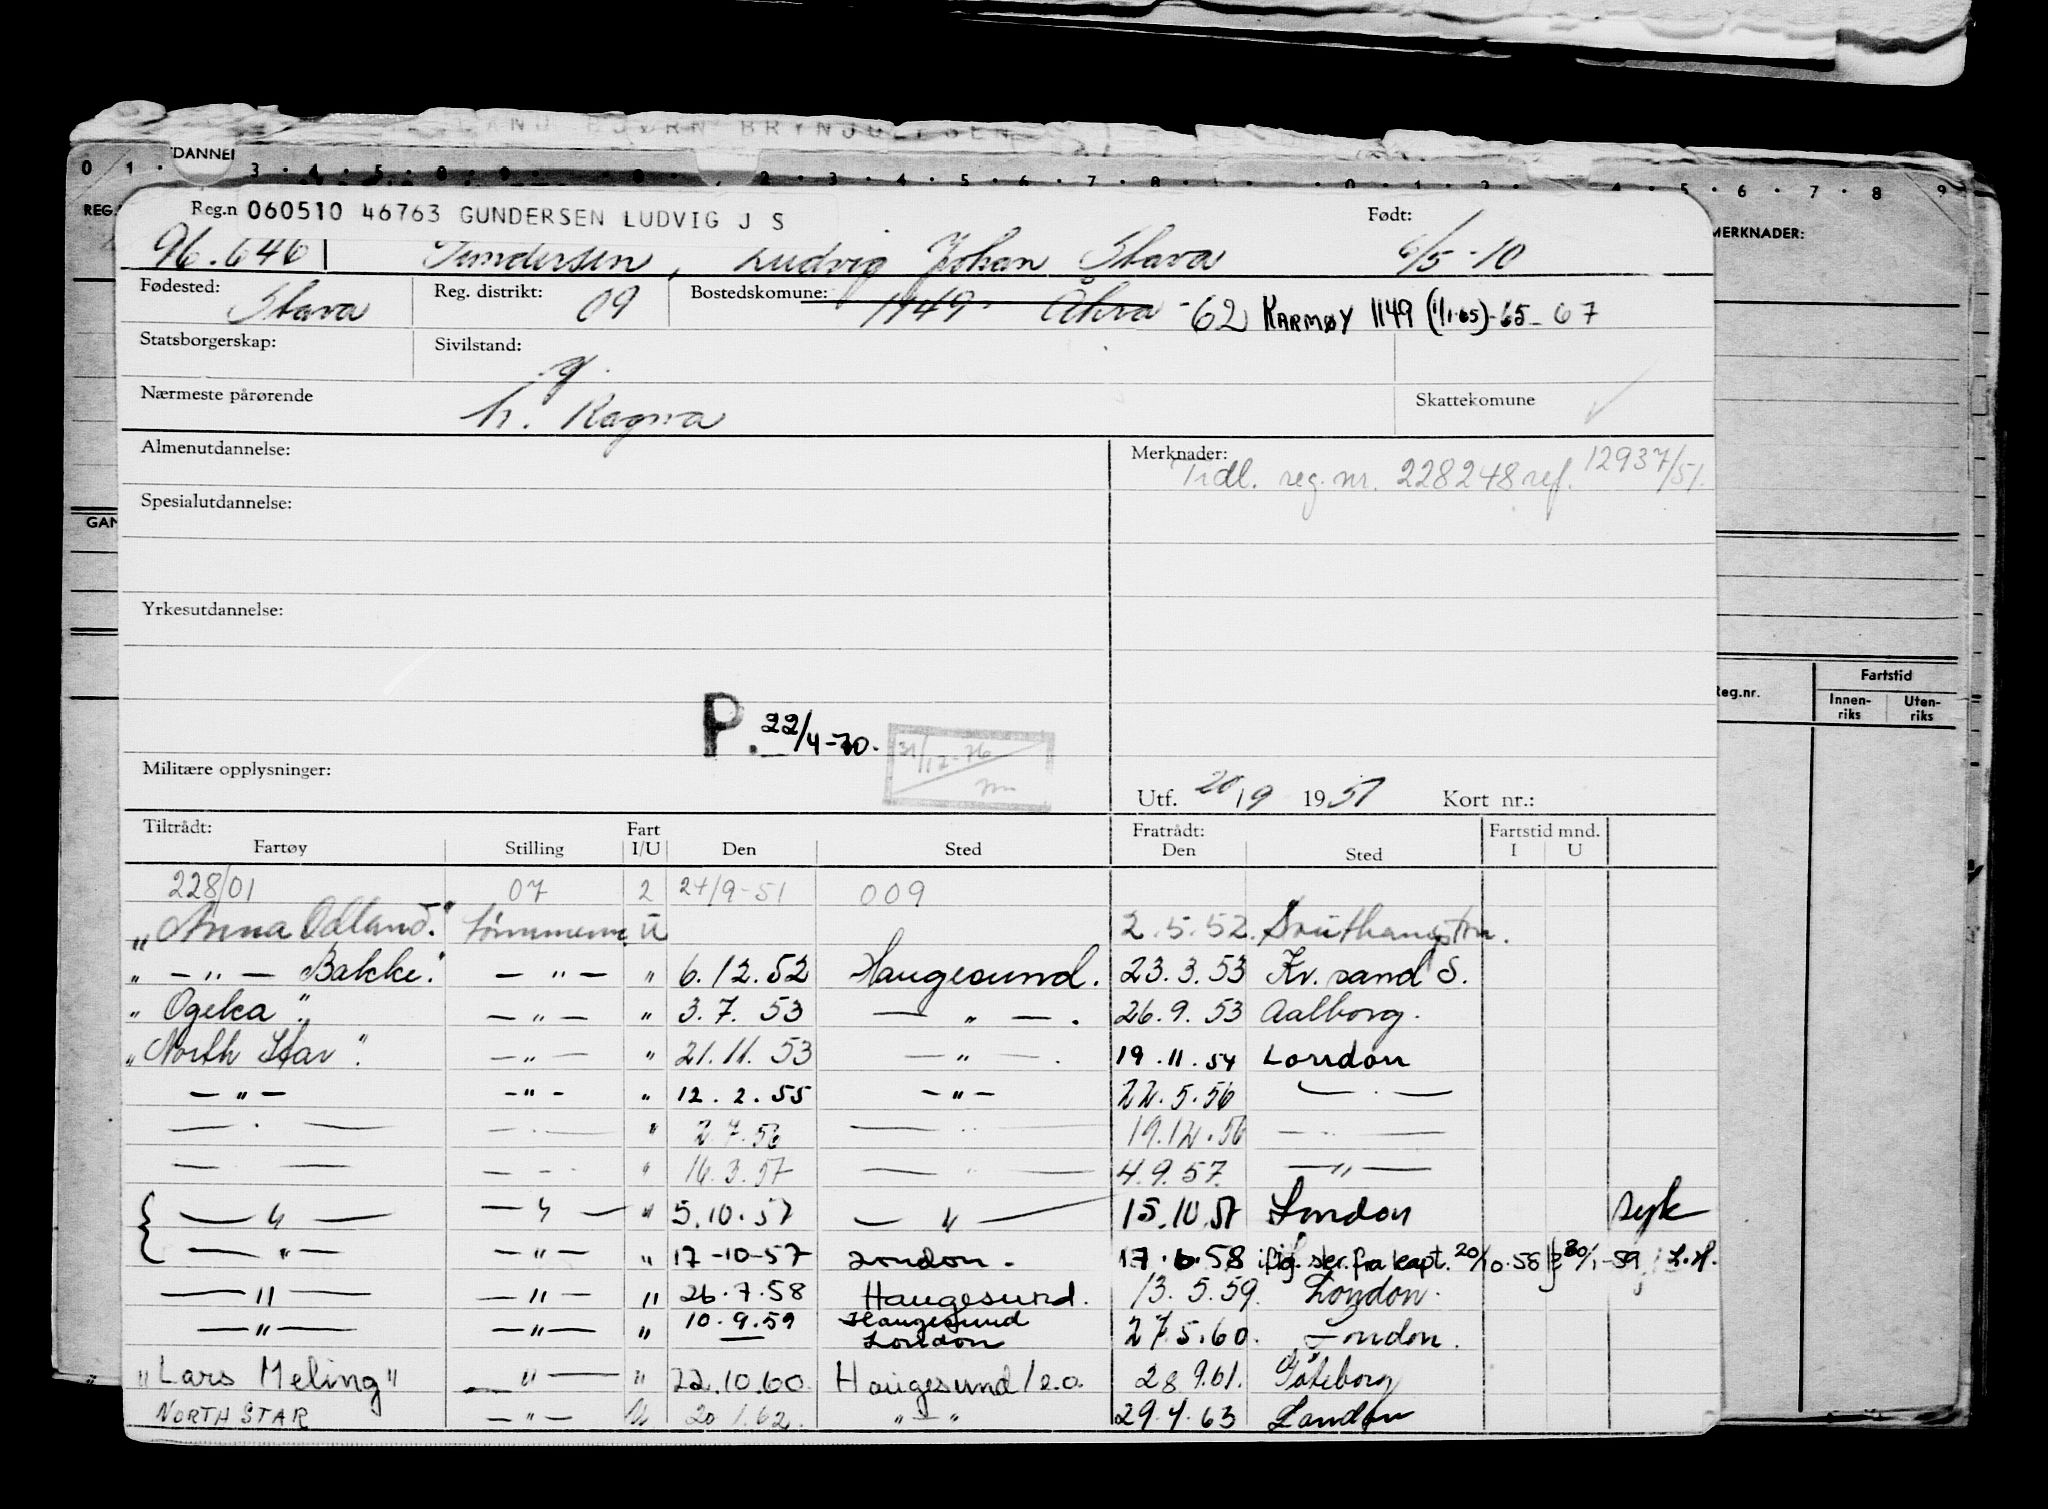 LAND BJØRN BRYNJULFSEN
TDANNEI
0 1 . 3 . 4 . 5 . 2 . 3 . 4 . 5 . 6 . 7 . 8 . 5 . 6 . 7 . 8 . 9
REG.
MERKNADER:
Reg.n 060510 46763 GUNDERSEN LUDVIG J S Født:
96.646 Gundersen, Ludvig Johan Stava 6/5-10
Fødested: Stava Reg. distrikt: 09 Bostedskomune: 1149 Åkra -62 KARMØY 1149 (1/1-65)-65-67
Statsborgerskap: Sivilstand: g.
Nærmeste pårørende h. Ragna Skattekomune
Almenutdannelse: Merknader: Tidl. reg.nr. 228248 ref. 12937/51.
Spesialutdannelse:
GAN
Yrkesutdannelse:
Fartstid
Reg.nr. Innen-riks Uten-riks
P. 22/4-70. 31/12-76
Militære opplysninger:
Utf. 20/9 1951 Kort nr.:
Tiltrådt: Fart Fratrådt: Fartstid mnd.
Fartøy Stilling I/U Den Sted Den Sted I U
228/01 07 2 24/9-51 009
"Anna Odland" Tømmerm U 2.5.52. Southampton.
" — " — Bakke" — " — " 6.12.52 Haugesund. 23.3.53 Kr.sand S.
"Ogeka" — " — " 3.7.53 — " — . 26.9.53 Aalborg.
"North Star" — " — " 21.11.53 — " — . 19.11.54 London
— " — — " — " 12.2.55 — " — 22.5.56 — " —
— " — — " — " 2.7.56 — " — 19.12.56 — " —
— " — — " — " 16.3.57 — " — 4.9.57. — " —
— " — — " — " 5.10.57 — " — 15.10.57 London syk
— " — — " — " 17-10-57 London. 17.6.58 iflg. skr. fra kapt. 20/10.58 30/1-59 L.H.
— " — — " — " 26.7.58 Haugesund. 13.5.59. London.
— " — — " — " 10.9.59 Haugesund London 27.5.60. London.
"Lars Meling" — " — " 22.10.60 Haugesund 28.9.61. Göteborg
NORTH STAR — " — U 20.1.62. " — " 29.4.63 London